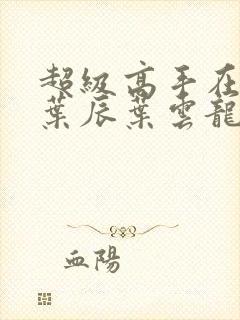 超級高手在
葉辰葉雲龍
血陽